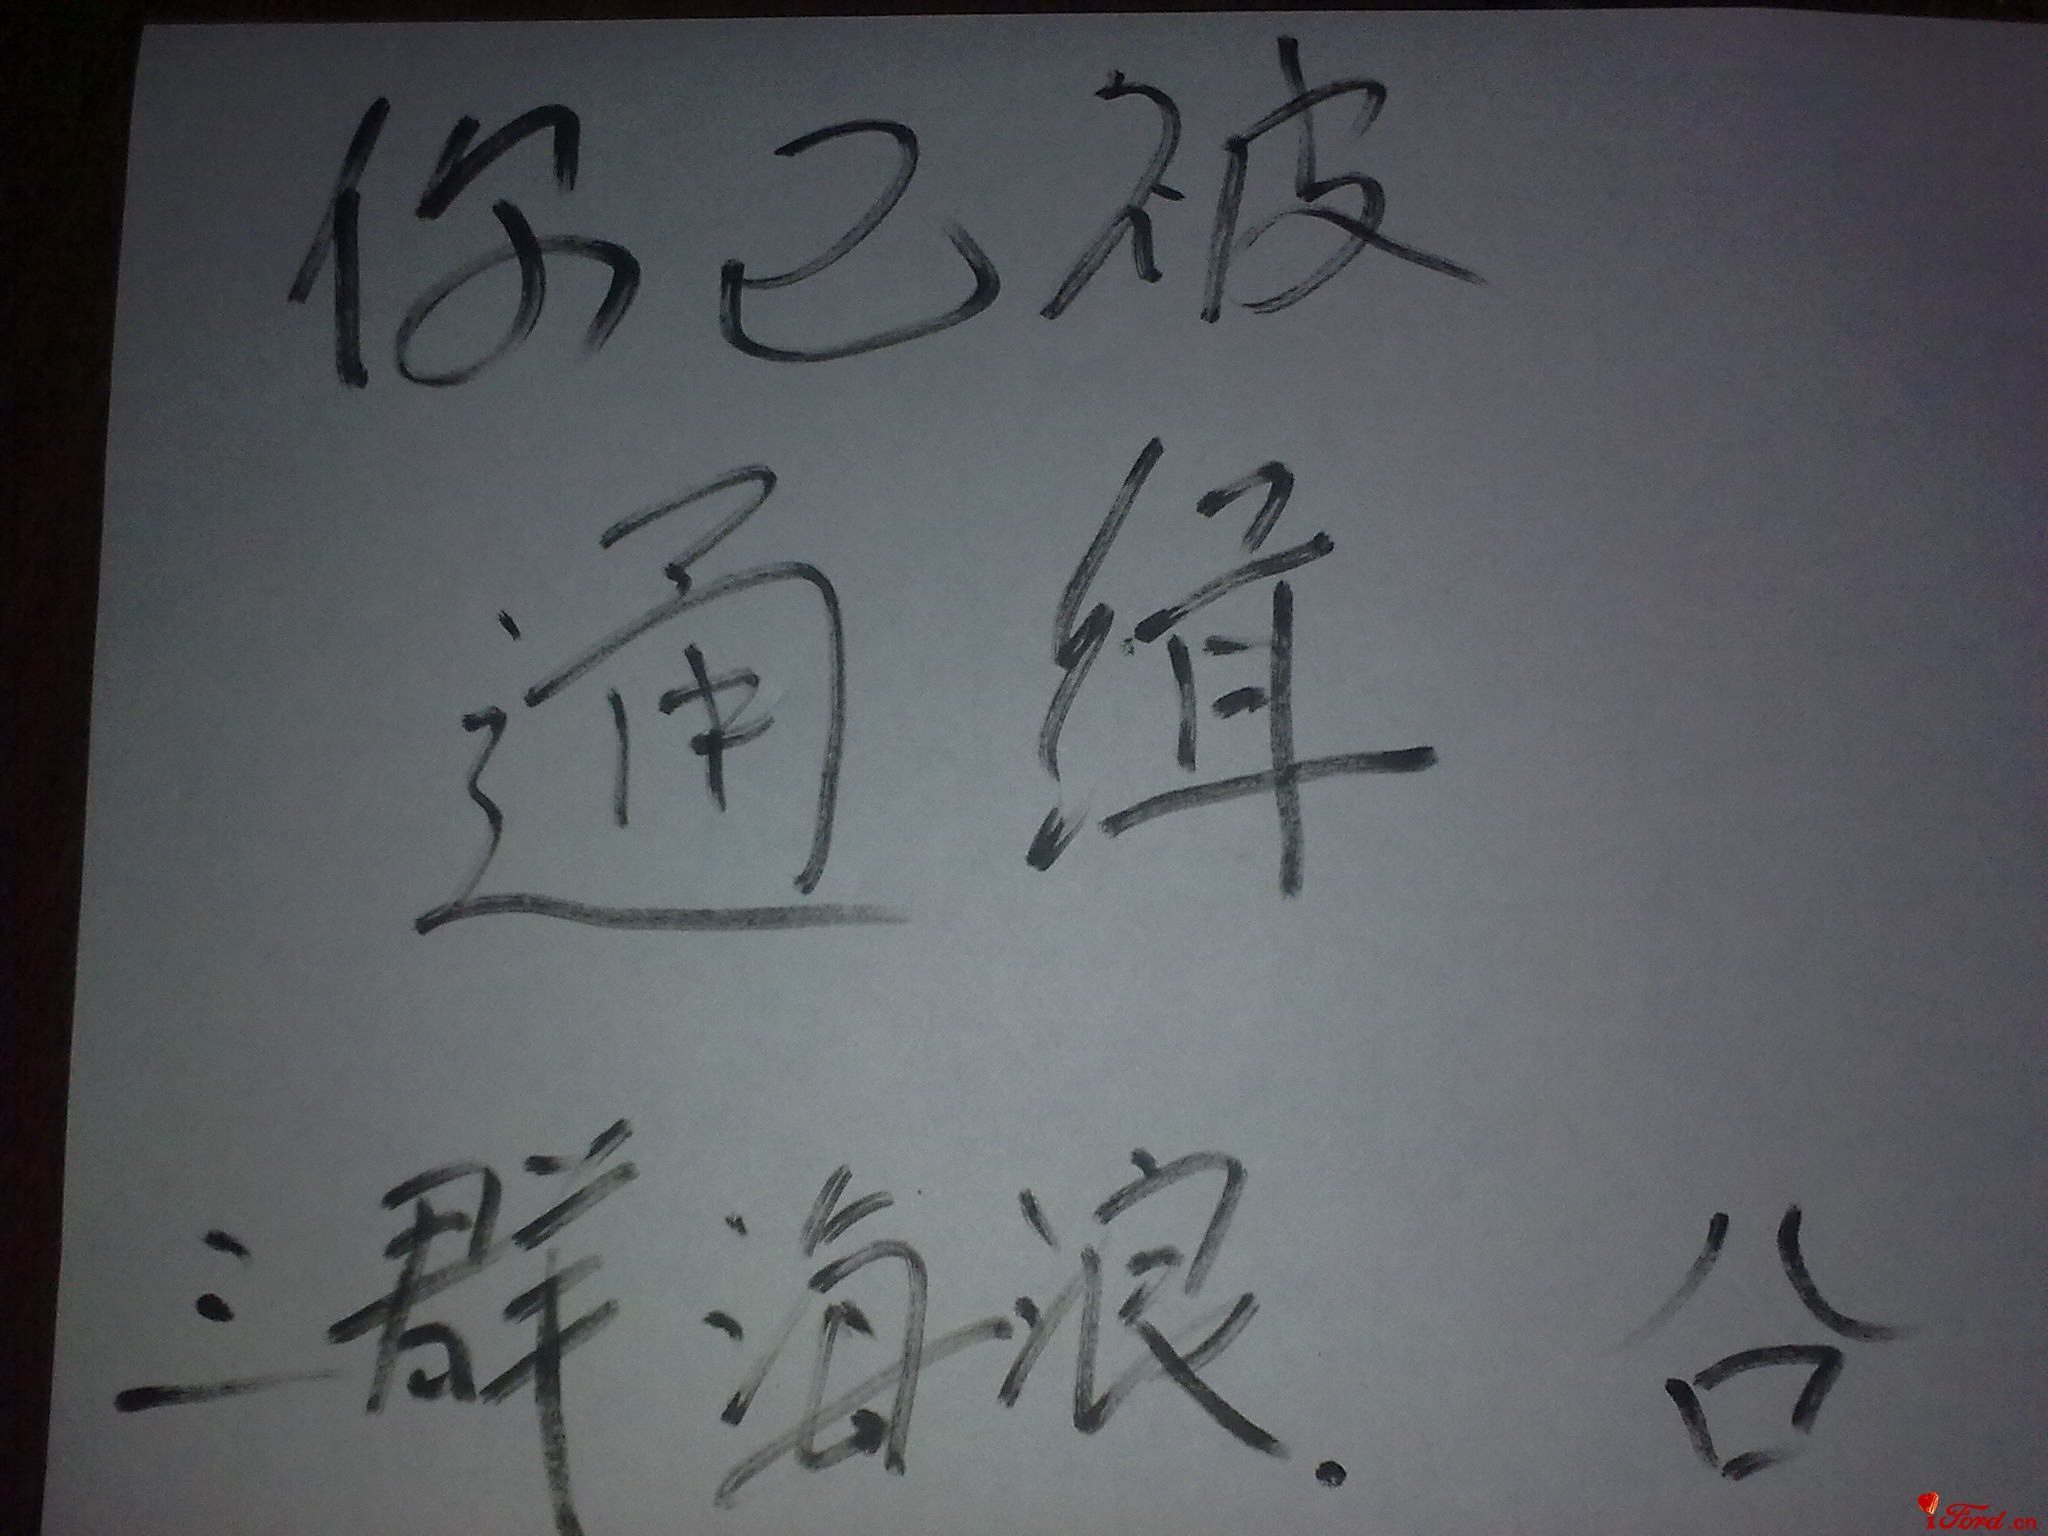 你已被
通缉
三群海浪. 台
iFord.cn